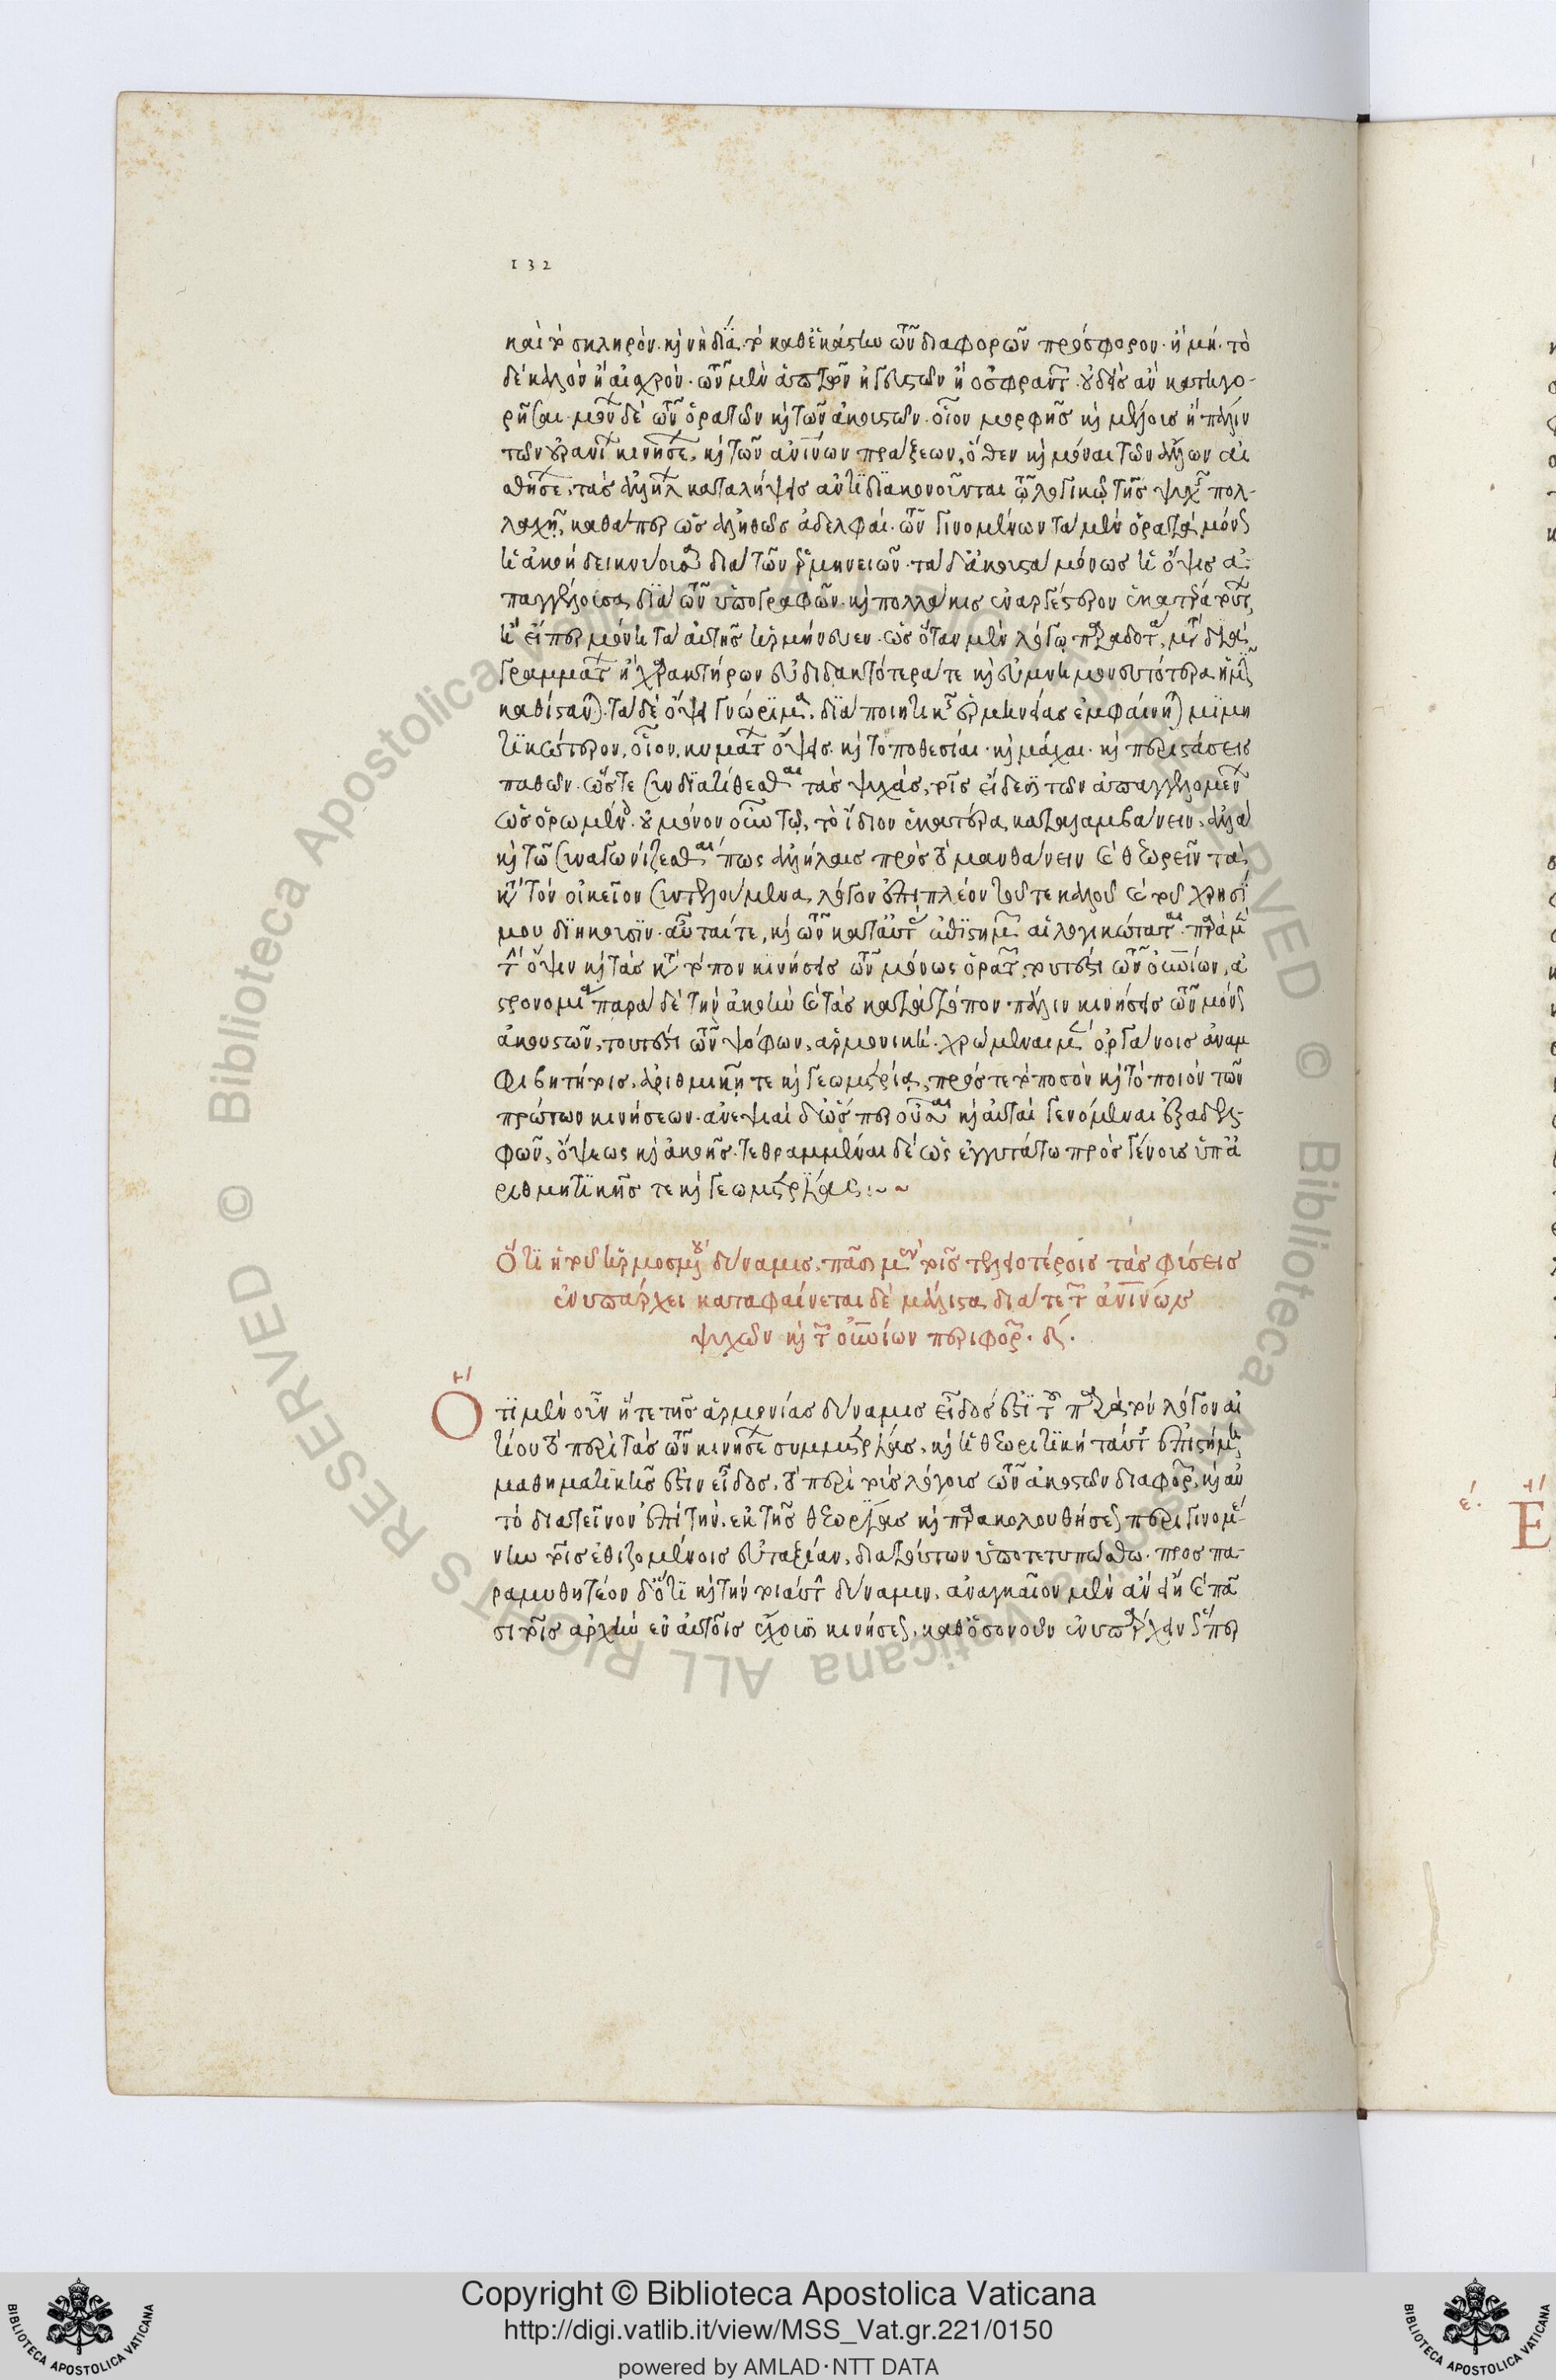 132
καὶ τὸ σκληρὸν· καὶ νὴ δία· τὸ καθἑκάστην τῶν διαφορῶν πρόσφορον· ἢ μή· τὸ
δὲ καλὸν ἢ αἰσχρὸν· τῶν μὲν ἁπτῶν ἢ γευστῶν ἢ ὀσφραντῶν· οὐδεὶς ἂν κατηγο-
ρῆσαι· μόνων δὲ τῶν ὁρατῶν καὶ τῶν ἀκουστῶν· οἷον μορφῆς καὶ μέλους ἢ πάλιν
τῶν οὐρανίων κινήσεων, καὶ τῶν ἀνθρωπίνων πράξεων, ὅθεν καὶ μόναι τῶν ἄλλων αἰ
σθήσεων, τὰς ἀλλήλων καταλήψεις ἀντιδιακονοῦνται τῷ λογικῷ τῆς ψυχῆς πολ-
λαχῆ, καθάπερ ὡς ἀληθῶς ἀδελφαί. τῶν γινομένων τὰ μὲν ὁρατὰ μόνως
τῇ ἀκοῇ δεικνύουσα διὰ τῶν ἑρμηνειῶν· τὰ δἀκουστὰ μόνως τῇ ὄψει ἀ-
παγγέλουσα διὰ τῶν ὑπογραφῶν· καὶ πολλάκις ἐναργέστερον ἑκατέρα τούτων,
ἢ εἴπερ μόνη τὰ αὐτῆς ἡρμήνευεν· ὡς ὅταν μὲν λόγῳ παραδοτὰ, μετὰ δια
γραμμάτων ἢ χαρακτήρων εὐδιδακτότερά τε καὶ εὐμνημονευτότερα ἡμῖν
καθίσταται· τὰ δὲ ὄψει γνώριμα, διὰ ποιητικῆς ἑρμηνείας ἐμφαίνηται μιμη
τικώτερον, οἷον, κυμάτων ὄψεις· καὶ τοποθεσίαι· καὶ μάχαι· καὶ περιστάσεις
παθῶν· ὥστε συνδιατίθεσθαι τὰς ψυχάς, τοῖς εἴδεσι τῶν ἀπαγγελομένων
ὡς ὁρωμένοις· οὐ μόνον οὖν τῷ, τὸ ἴδιον ἑκατέρα, καταλαμβάνειν, ἀλλὰ
καὶ τῷ συναγωνίζεσθαί πως ἀλλήλαις πρὸς τὸ μανθάνειν καὶ θεωρεῖν τὰ
κατὰ τὸν οἰκεῖον συντελούμενα λόγον ἐπιπλέον τοῦ τε καλοῦ καὶ τοῦ χρησί
μου διήκουσιν· αὗταί τε, καὶ τῶν κατ' αὐτὰς ἐπιστημῶν αἱ λογικώταται· παρὰ μὲν
τὴν ὄψιν καὶ τὰς κατὰ τόπον κινήσεις τῶν μόνως ὁρατῶν, τουτέστι τῶν οὐρανίων, ἀ
στρονομία· παρὰ δὲ τὴν ἀκοὴν καὶ τὰς κατὰ τόπον πάλιν κινήσεις τῶν μόνως
ἀκουστῶν, τουτέστι τῶν ψόφων, ἁρμονική. χρώμεναι μὲν ὀργάνοις ἀναμ
φισβητήτοις, ἀριθμητικῇ τε καὶ γεωμετρίᾳ, πρός τε τὸ ποσὸν καὶ τὸ ποιὸν τῶν
πρώτων κινήσεων. ἀνεψιαὶ δ' ὥσπερ οὖσαι καὶ αὐταὶ γενόμεναι ἐξ ἀδελ-
φῶν, ὄψεως καὶ ἀκοῆς. τεθραμμέναι δὲ ὡς ἐγγυτάτω πρὸς γένους ὑπὰ
ριθμητικῆς τε καὶ γεωμετρίας :~ ~
Ὅτι ἡ τοῦ ἡρμοσμένου δύναμις, πᾶσι μὲν τοῖς τελειοτέροις τὰς φύσεις
ἐνυπάρχει καταφαίνεται δὲ μάλιστα διά τε τῶν ἀνθρωπίνων
ψυχῶν καὶ τῶν οὐρανίων περιφορῶν. δʹ.
Ὅτι μὲν οὖν ἥ τε τῆς ἁρμονίας δύναμις εἶδός ἐστι τοῦ παρὰ τὸν λόγον αἰ
τίου τὸ περὶ τὰς τῶν κινήσεων συμμετρίας, καὶ ἡ θεωρητικὴ ταύτης ἐπιστήμη,
μαθηματικῆς ἐστιν εἶδος, τὸ περὶ τοὺς λόγους τῶν ἀκουστῶν διαφορῶν, καὶ αὐ
τὸ διατεῖνον ἐπὶ τὴν ἐκ τῆς θεωρίας καὶ παρακολουθήσεως περιγινομέ
νην τοῖς ἐθιζομένοις εὐταξίαν, διὰ τούτων ὑποτετυπώσθω· προσπα-
ραμυθητέον δ' ὅτι καὶ τὴν τοιαύτην δύναμιν, ἀναγκαῖον μὲν ἂν εἴη καὶ πᾶ
σι τοῖς ἀρχὴν ἐν αὑτοῖς ἔχουσι κινήσεως, καθόσονοῦν ἐνυπάρχειν ὥσπερ
έ.
Ε
Copyright © Biblioteca Apostolica Vaticana
http://digi.vatlib.it/view/MSS_Vat.gr.221/0150
powered by AMLAD·NTT DATA